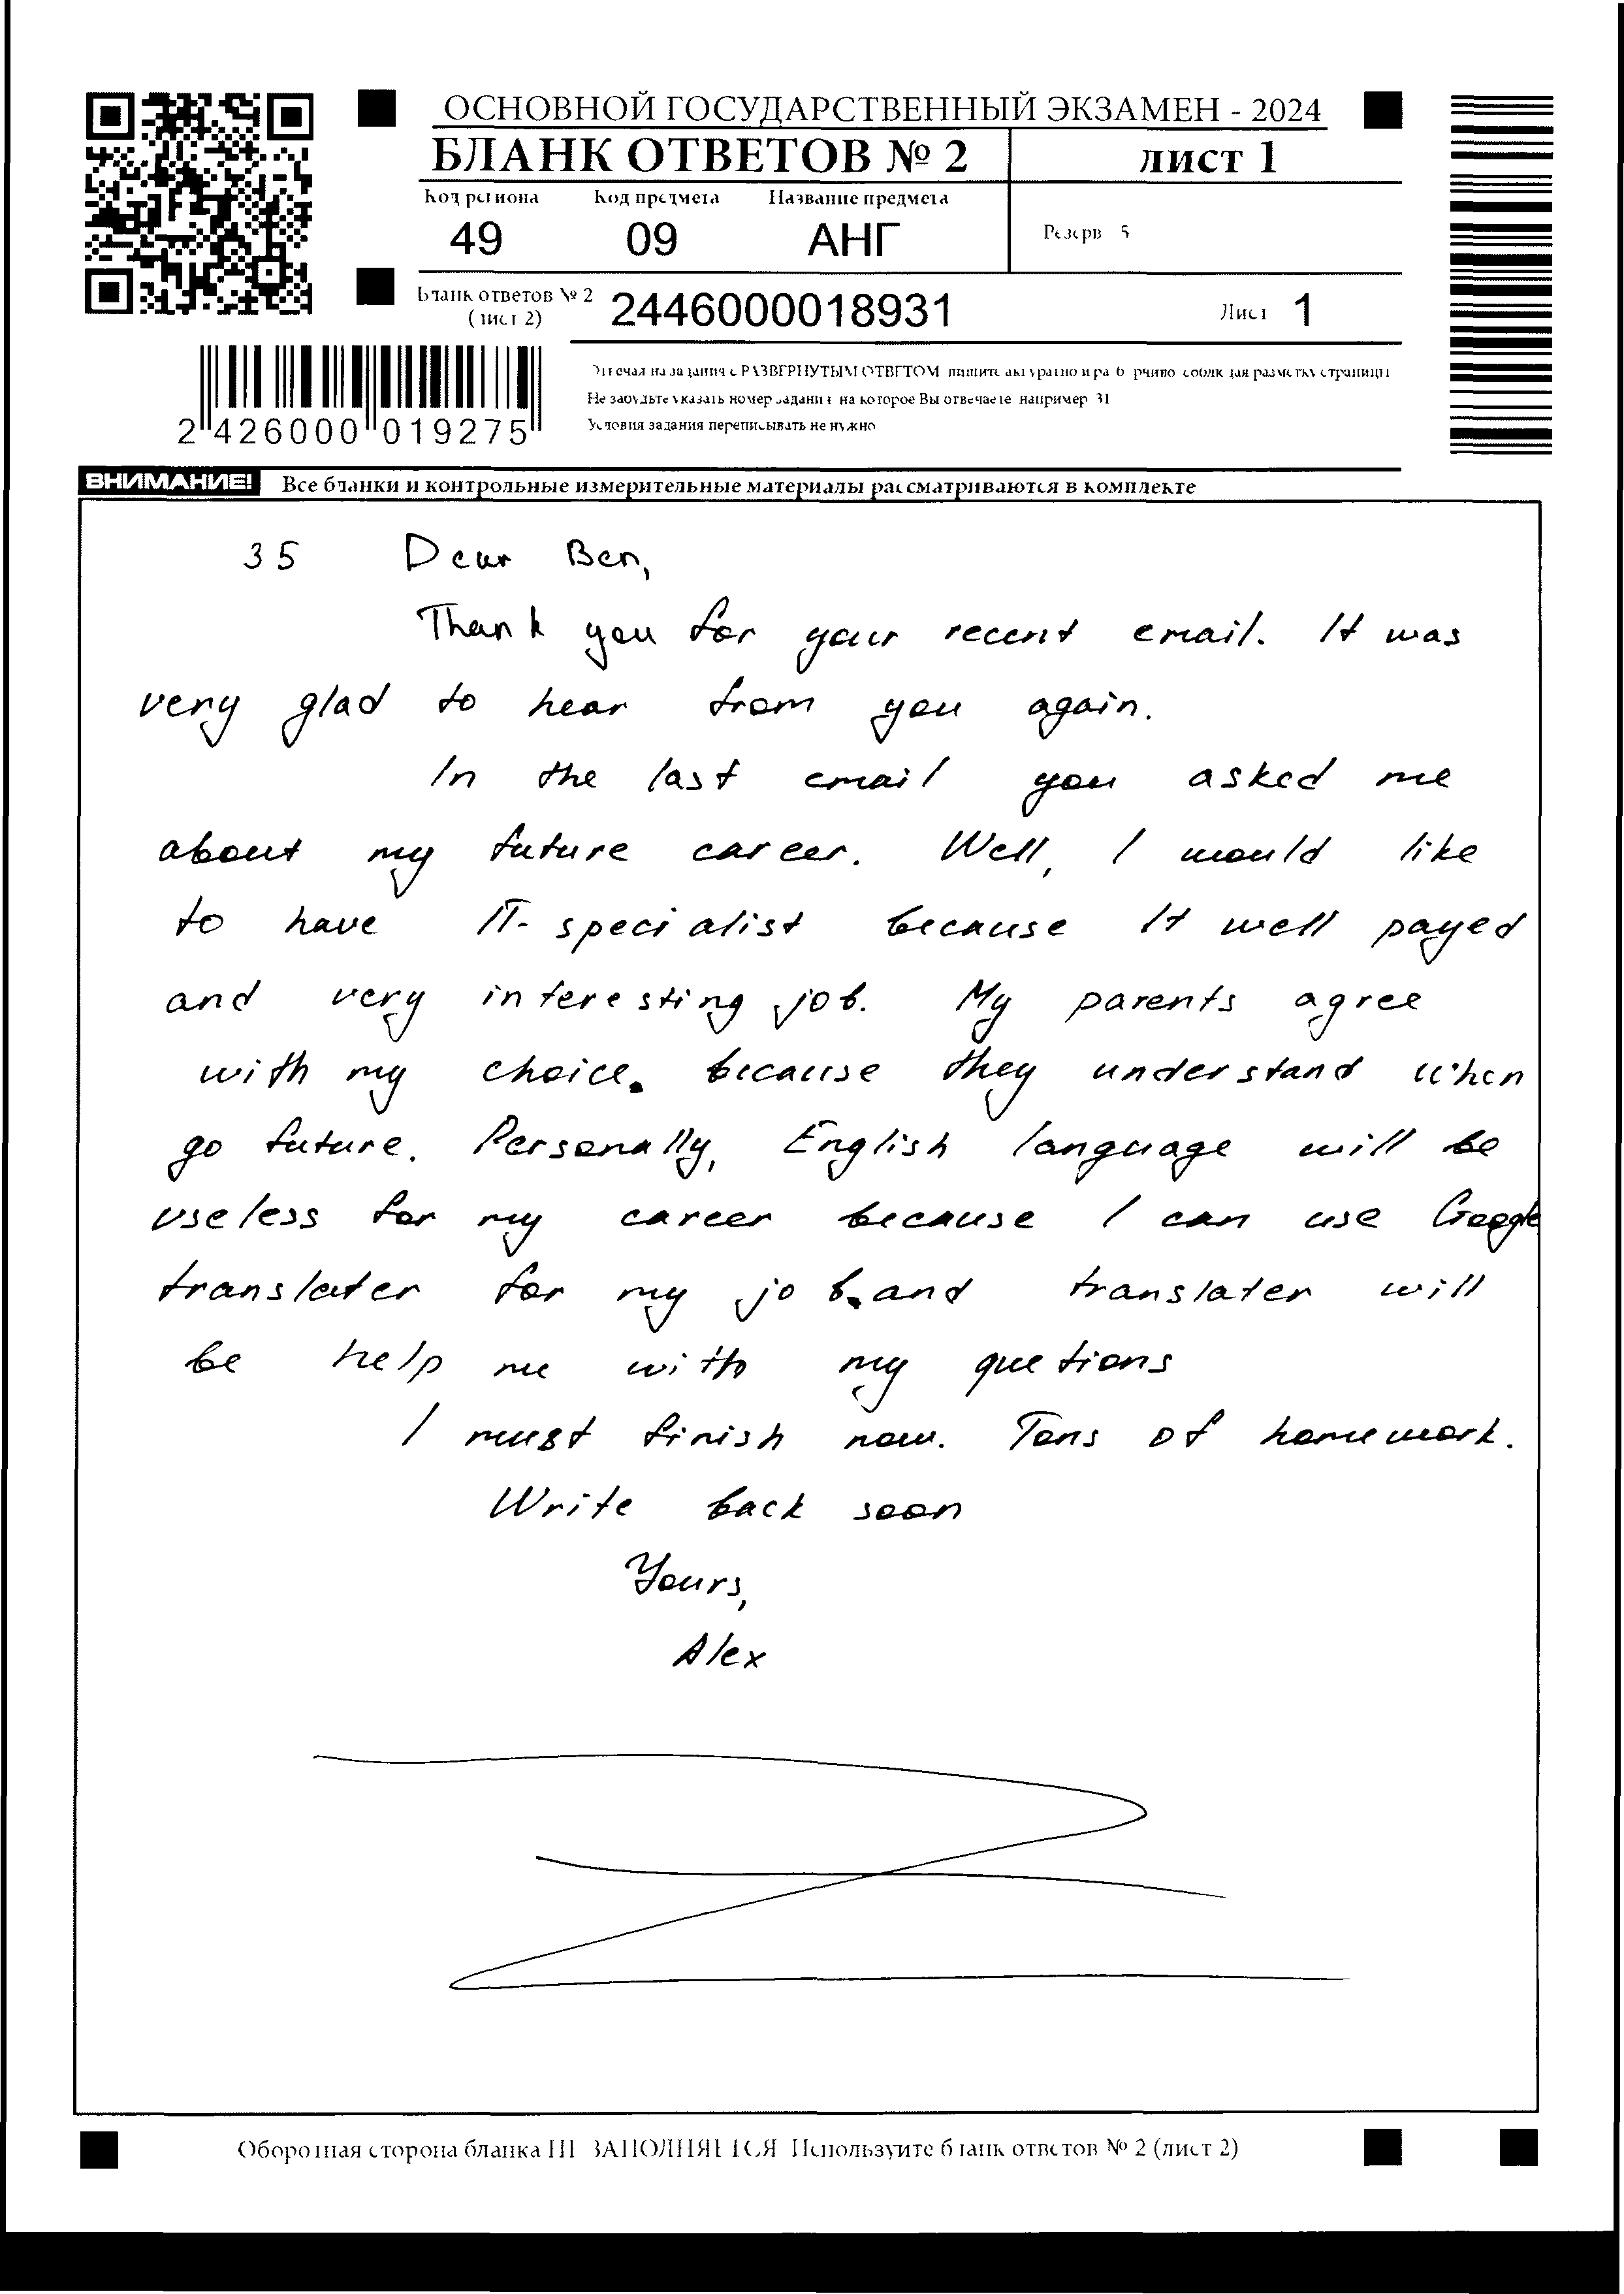 ОСНОВНОЙ ГОСУДАРСТВЕННЫЙ ЭКЗАМЕН - 2024
БЛАНК ОТВЕТОВ № 2
лист 1
Код региона
Код предмета
Название предмета
49
09
АНГ
Резерв 5
Бланк ответов № 2
(лист 2)
2446000018931
Лист 1
Отвечая на задания с РАЗВЕРНУТЫМ ОТВЕТОМ пишите аккуратно и разборчиво соблюдая разметку страницы
Не забудьте указать номер задания на которое Вы отвечаете например 31
Условия задания переписывать не нужно
2 426000 019275
ВНИМАНИЕ! Все бланки и контрольные измерительные материалы рассматриваются в комплекте
35 Dear Ben,
Thank you for your recent email. It was
very glad to hear from you again.
In the last email you asked me
about my future career. Well, I would like
to have IT-specialist because it well payed
and very interesting job. My parents agree
with my choice. because they understand when
go future. Personally, English language will be
useless for my career because I can use Google
translater for my job. and translater will
be help me with my quetions
I must finish now. Tons of homework.
Write back soon
Yours,
Alex
Оборотная сторона бланка НЕ ЗАПОЛНЯЕТСЯ Используйте бланк ответов № 2 (лист 2)